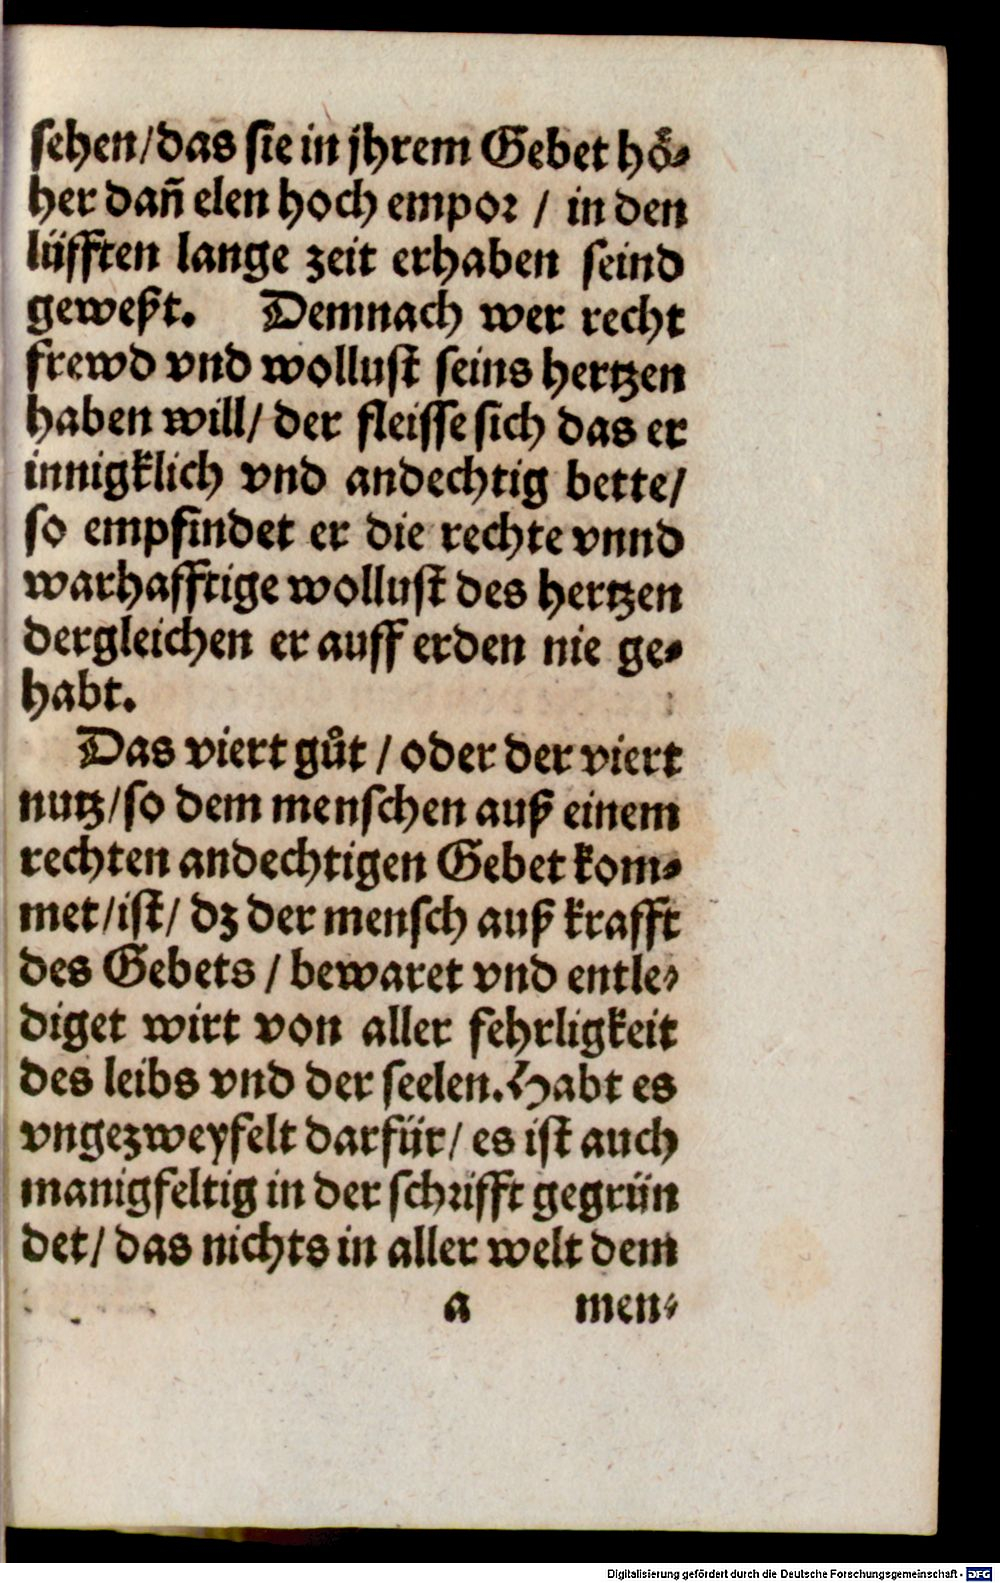 sehen/das sie in jhrem Gebet hoͤ⸗
her dañ elen hoch empor / in den
lüfften lange zeit erhaben seind
geweßt. Demnach wer recht
frewd vnd wollust seins hertzen
haben will/ der fleisse sich das er
innigklich vnd andechtig bette/
so empfindet er die rechte vnnd
warhafftige wollust des hertzen
dergleichen er auff erden nie ge⸗
habt.
Das viert guͦt / oder der viert
nutz/so dem menschen auß einem
rechten andechtigen Gebet kom⸗
met/ist/ dz der mensch auß krafft
des Gebets / bewaret vnd entle⸗
diget wirt von aller fehrligkeit
des leibs vnd der seelen. Habt es
vngezweyfelt darfür/ es ist auch
manigfeltig in der schrifft gegrün
det/ das nichts in aller welt dem
a men⸗
Digitalisierung gefördert durch die Deutsche Forschungsgemeinschaft - DFG